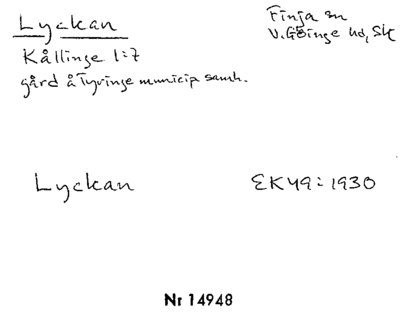 Lyckan
Finja sn
V. Göinge hd, Sk
Kållinge 1:7
gård å Tyringe municip. samh.
Lyckan
EK 49: 1930
Nr 14948